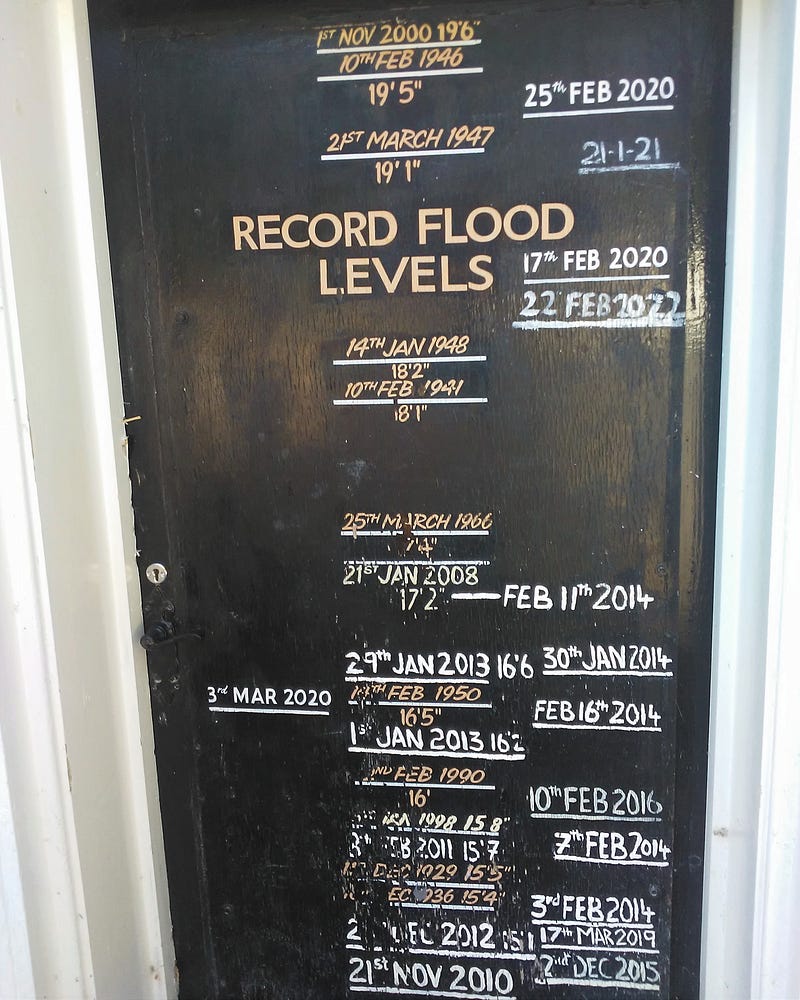 1ST NOV 2000 19'6"
10TH FEB 1946
19'5"
25th FEB 2020
21ST MARCH 1947
19'1"
21-1-21
RECORD FLOOD
LEVELS
17th FEB 2020
22 FEB 2022
14TH JAN 1948
18'2"
10TH FEB 1941
18'1"
25TH MARCH 1966
21ST JAN 2008
17'2" — FEB 11th 2014
29th JAN 2013 16'6 30th JAN 2014
3rd MAR 2020
FEB 1950
16'5"
FEB 16th 2014
1st JAN 2013 16'2
FEB 1990
16'
10th FEB 2016
1998 15'8"
2011 15'7
7th FEB 2014
1929 15'5"
1936 15'4"
3rd FEB 2014
DEC 2012 15'1
17th MAR 2019
21st NOV 2010
2nd DEC 2015